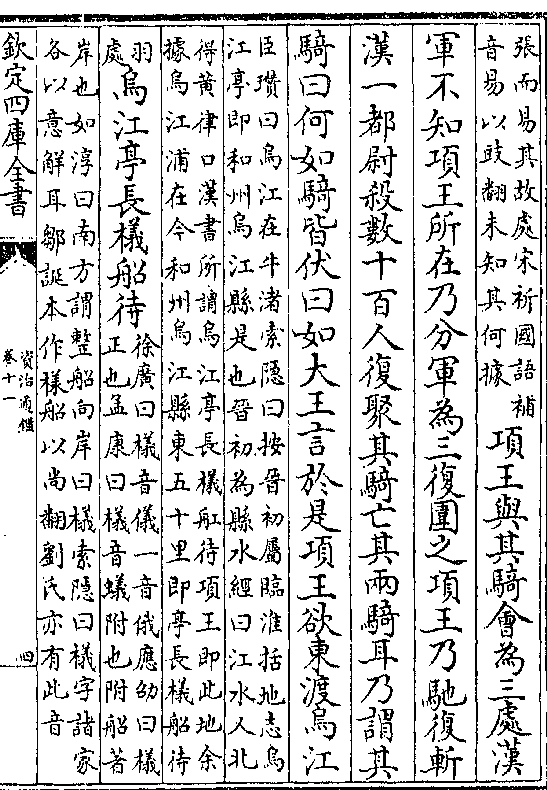 張而易其故處宋祁國語補
音易以豉翻未知其何據
項王與其騎會為三處漢
軍不知項王所在乃分軍為三復圍之項王乃馳復斬
漢一都尉殺數十百人復聚其騎亡其兩騎耳乃謂其
騎曰何如騎皆伏曰如大王言於是項王欲東渡烏江
臣瓚曰烏江在牛渚索隱曰按晉初屬臨淮括地志烏
江亭即和州烏江縣是也晉初為縣水經曰江水人北
得黄律口漢書所謂烏江亭長檥舡待項王即此地余
據烏江浦在今和州烏江縣東五十里即亭長檥船待
羽
處
烏江亭長檥船待
徐廣曰檥音儀一音俄應劭曰檥
正也孟康曰檥音蟻附也附船著
岸也如淳曰南方謂整船向岸曰檥索隱曰檥字諸家
各以意解耳鄒誕本作樣船以尚翻劉氏亦有此音
欽定四庫全書
資治通鑑
卷十一
四